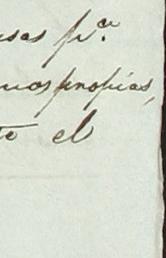 sas p.ª
nos propias,
to el